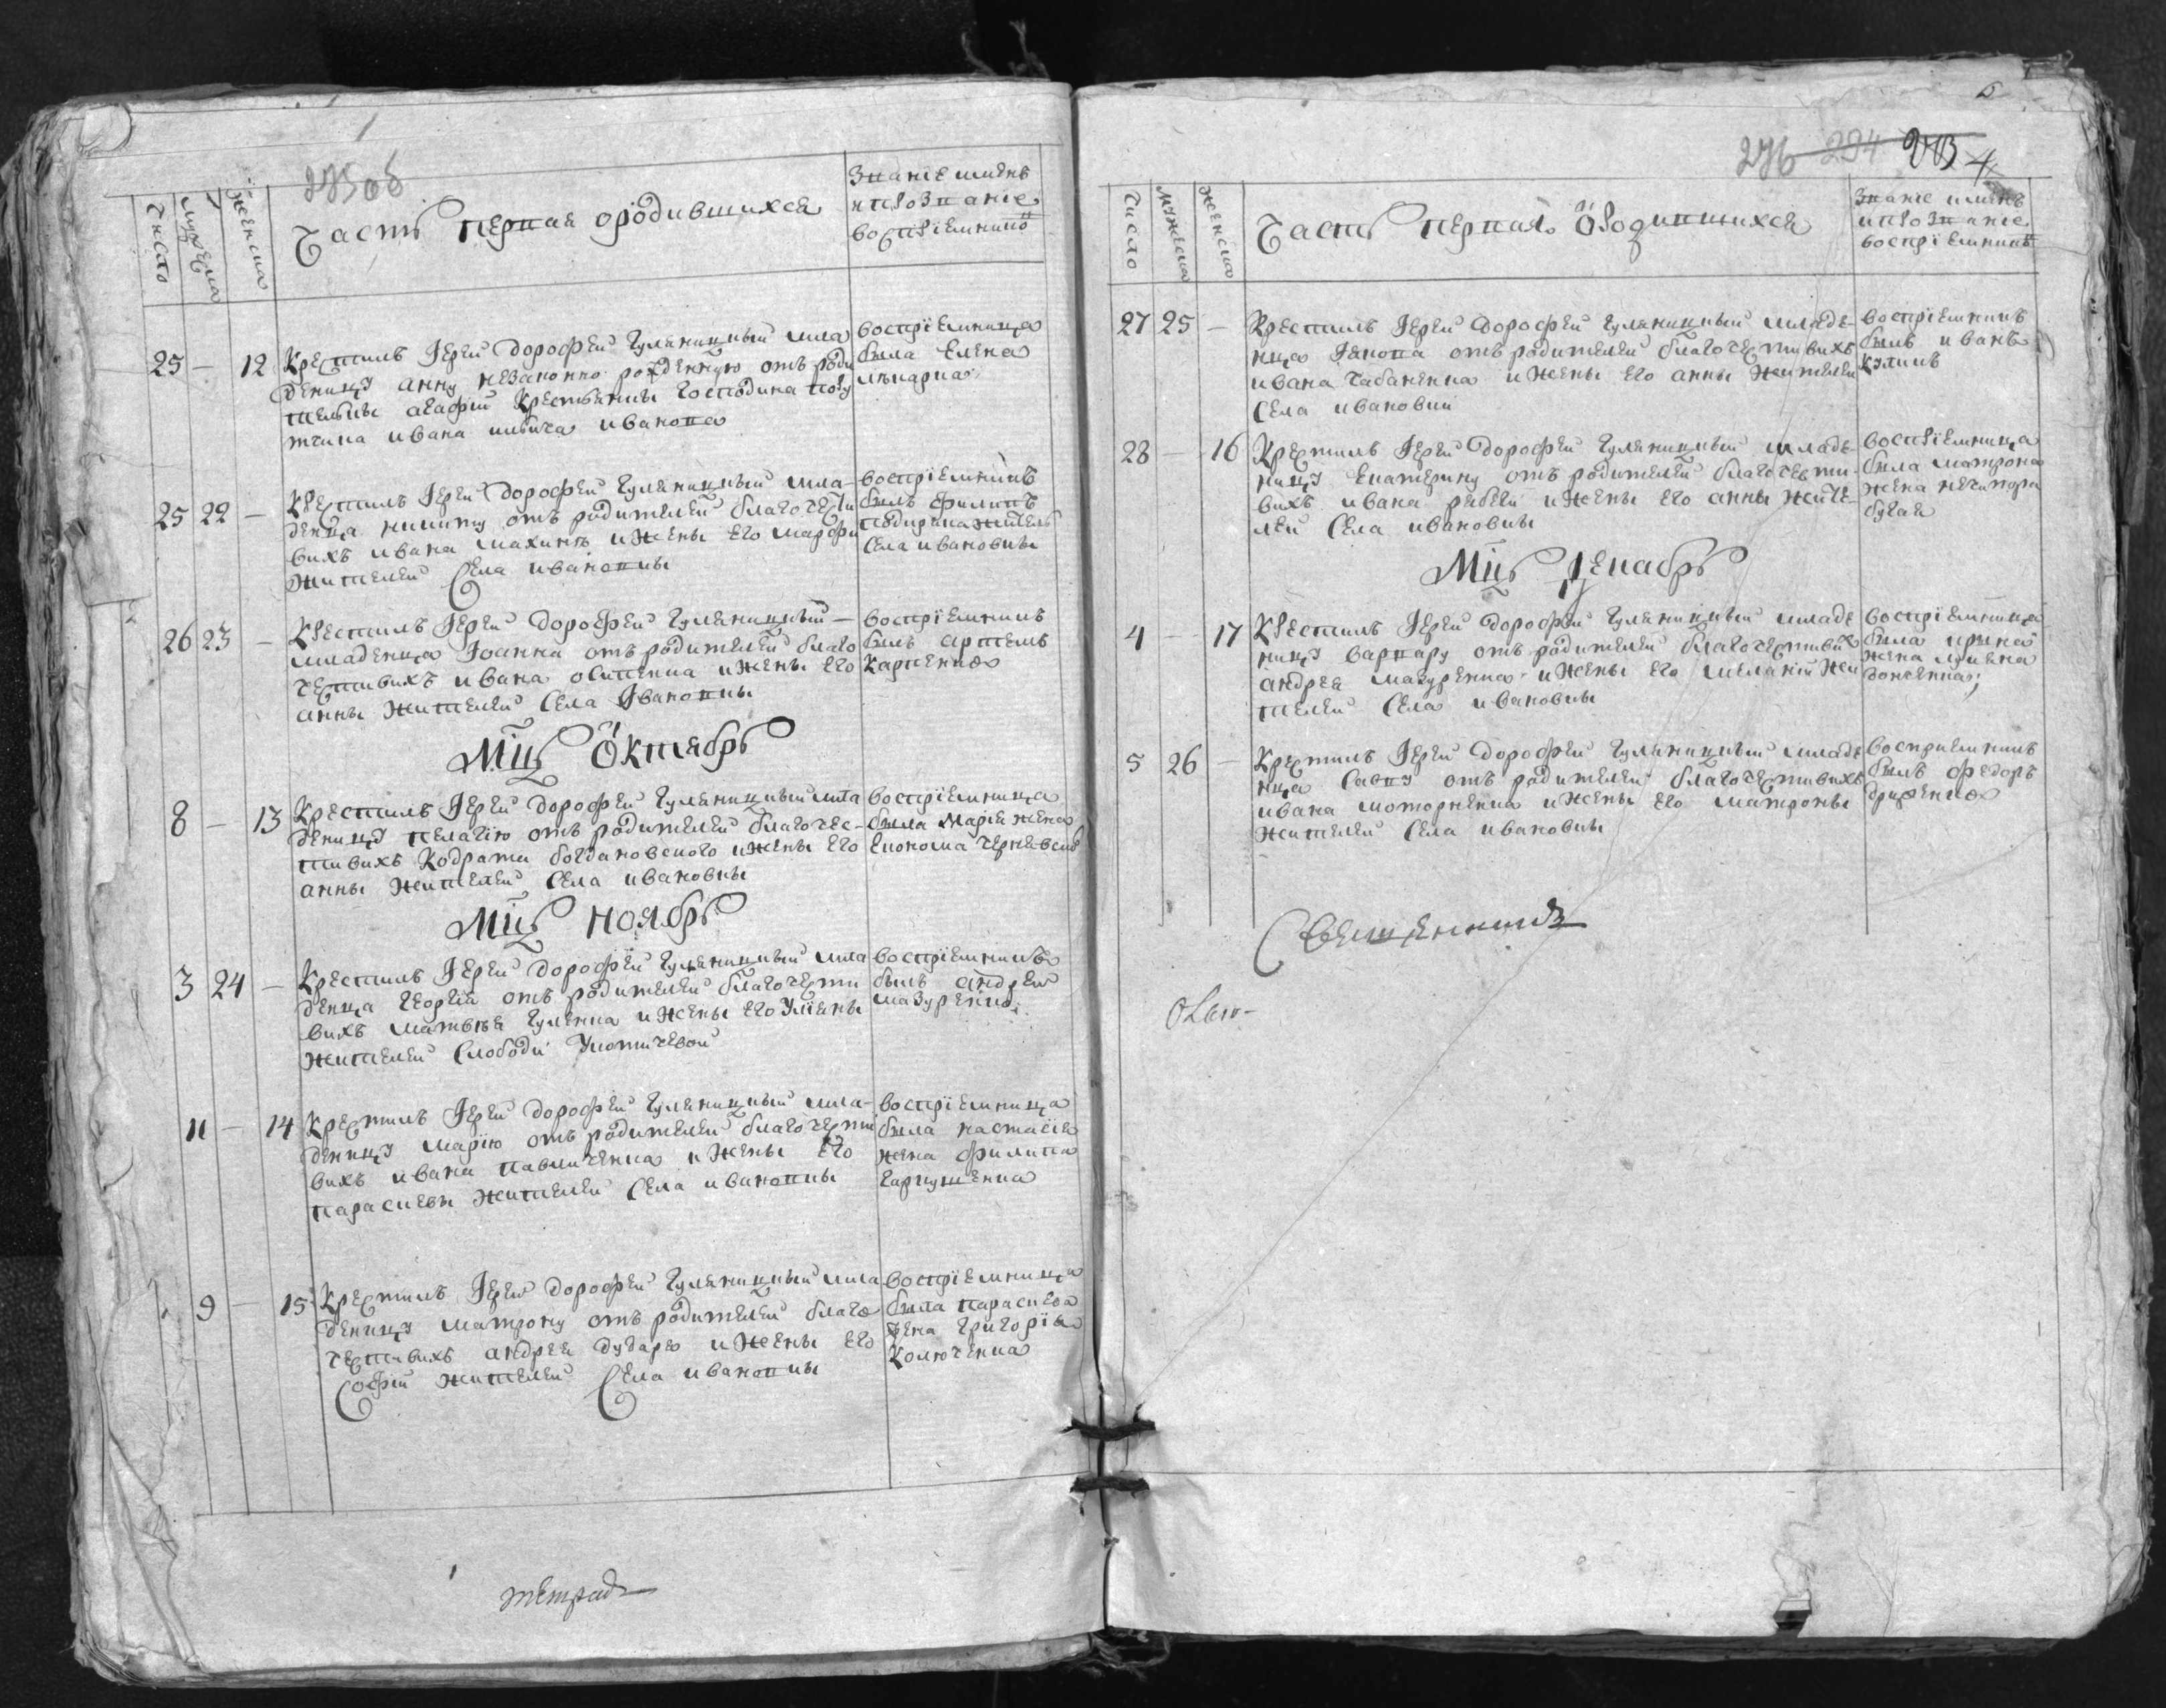 275 об
Число
Мужеска
Женска
Часть первая о родившихся
Званіе именъ
и прозваніе
воспріемникъ
25 — 12
Крестилъ Іерей Дорофей Гуляницкый мла
деницу анну незаконно рожденную отъ роди
тельны агафіи Крестьянки Господина пору
тчика ивана ивановича иванова
воспріемница
была Елена
25 22 —
Крестилъ Іерей Дорофей Гуляницкый мла-
денца никиту отъ родителей благочести
вихъ ивана махинѣ и жены его марфи
жителей Села ивановки
воспріемникъ
былъ филиппъ
житель
Села ивановки
26 23 —
Крестилъ Іерей Дорофей Гуляницкый —
младенца Іоанна отъ родителей благо
честивихъ ивана осипенка и жены его
анны жителей Села Івановки
воспріемникъ
былъ артемъ
Карпенко
Мцъ Октябрь
8 — 13
Крестилъ Іерей Дорофей Гуляницкый мла
деницу пелагію отъ родителей благочес-
тивихъ Кодрата богдановского и жены его
анны жителей Села ивановки
воспріемница
была Марія жена
Економа
Мцъ ноябрь
3 24 —
Крестилъ Іерей Дорофей Гуляницкый мла
денца георгія отъ родителей благочести
вихъ матвѣя гуленка и жены его Уліяны
жителей Слободи
воспріемникъ
былъ андрей
мазуренко
11 — 14
Крестилъ Іерей Дорофей Гуляницкый мла-
деницу марію отъ родителей благочести
вихъ ивана павличенка и жены его
параскевы жителей Села ивановки
воспріемница
была настасія
жена филипа
гаркушенка
9 — 15
Крестилъ Іерей Дорофей Гуляницкый мла
деницу матрону отъ родителей благо
честивихъ андрея дударя и жены его
Софіи жителей Села ивановки
воспріемница
была параскева
жена григорія
Колюченка
тетрадь
276 294
Число
Мужеска
Женска
Часть первая о родившихся
Званіе именъ
и прозваніе
воспріемникъ
27 25 —
Крестилъ Іерей Дорофей Гуляницкый младе-
нца Іякова отъ родителей благочестивихъ
ивана чабаненка и жены его анны жителей
Села ивановки
воспріемникъ
былъ иванъ
28 — 16
Крестилъ Іерей Дорофей Гуляницкый младе-
ницу Екатерину отъ родителей благочести-
вихъ ивана рябѣй и жены его анны жите-
лей Села ивановки
воспріемница
была матрона
жена нечипора
бугая
Мцъ Декабрь
4 — 17
Крестилъ Іерей Дорофей Гуляницкый младе
ницу варвару отъ родителей благочестивихъ
андрея мазуренка и жены его меланіи жи
телей Села ивановки
воспріемница
была ирина
жена
5 26 —
Крестилъ Іерей Дорофей Гуляницкый младе
нца Савву отъ родителей благочестивихъ
ивана моторненка и жены его матроны
жителей Села ивановки
воспріемникъ
былъ федоръ
Священникъ